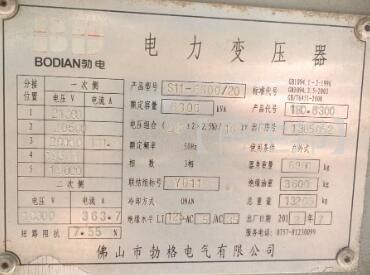 BODIAN勃电
电力变压器
分接位置 一次侧
电压 V 电流 A
1 21000
2 20500
3 20000
4
5 19000
二次侧
电压 V 电流 A
10000 363.7
短路阻抗 7.55 %
产品型号 S11-6300/20 标准代号 GB1094.1-2-1996
GB1094.3.5-2003
GB/T6451-2008
额定容量 6300 kVA 产品代号 1BD-6300
电压组合 20±2×2.5%/10 kV 出厂序号
额定频率 50Hz 使用条件 户外式
相数 3相 器身重量 kg
联结组标号 绝缘油重 3600 kg
冷却方式 ONAN 总重量 13200 kg
绝缘水平 LI125AC55/35 出厂日期
服务电话: 0757-81230099
佛山市勃格电气有限公司